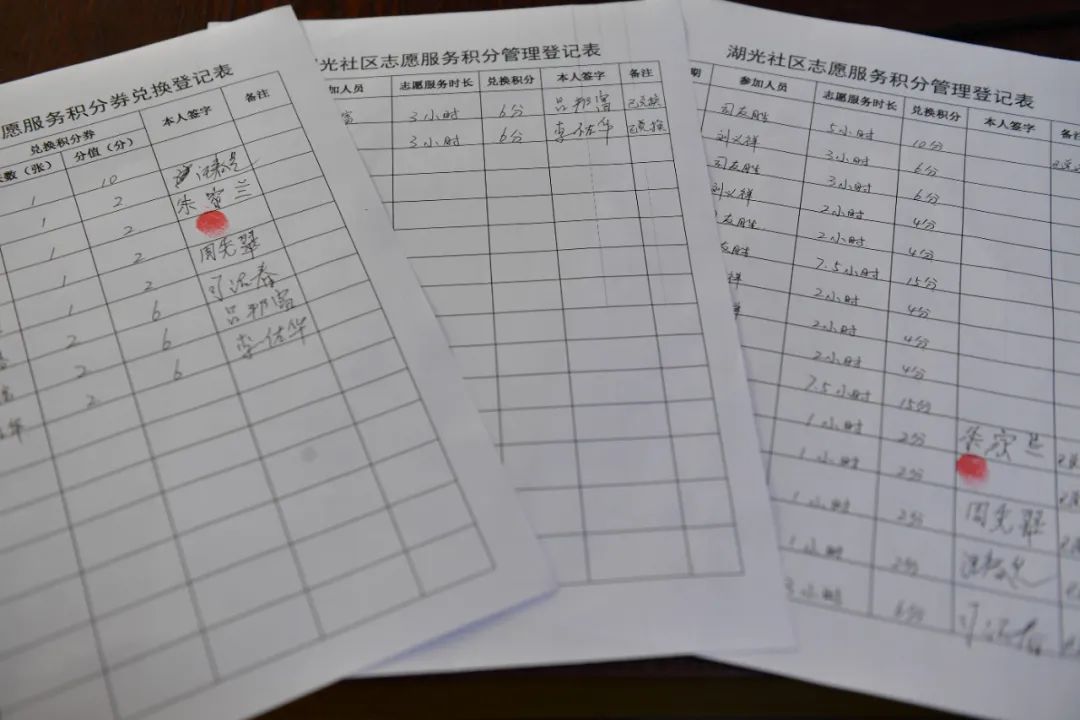 愿服务积分券兑换登记表
兑换积分券 本人签字 备注
数（张） 分值（分）
1 10
1 2 朱蜜兰
1 2
1 2 周先翠
1 6
2 6 吕邦富
2 6 李佳华
2
光社区志愿服务积分管理登记表
加人员 志愿服务时长 兑换积分 本人签字 备注
富 3小时 6分 吕邦富 已兑换
3小时 6分 李佳华 已兑换
湖光社区志愿服务积分管理登记表
期 参加人员 志愿服务时长 兑换积分 本人签字 备
司友胜 5小时 10分
刘义祥 3小时 6分
司友胜 3小时 6分
刘义祥 2小时 4分
友胜 2小时 4分
友胜 7.5小时 15分
祥 2小时 4分
祥 2小时 4分
2小时 4分
7.5小时 15分
1小时 2分
1小时 2分
1小时 2分 周先翠
1小时 2分
3小时 6分